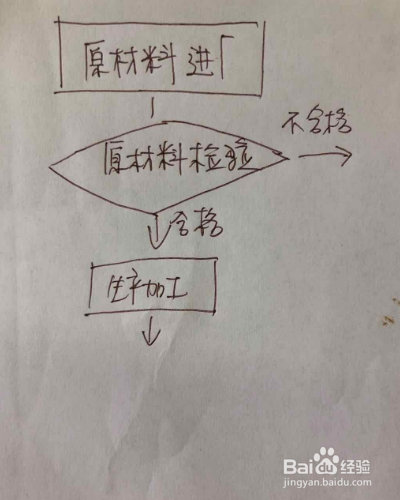 原材料进厂
不合格
原材料检验
合格
生产加工
Baidu经验
jingyan.baidu.com